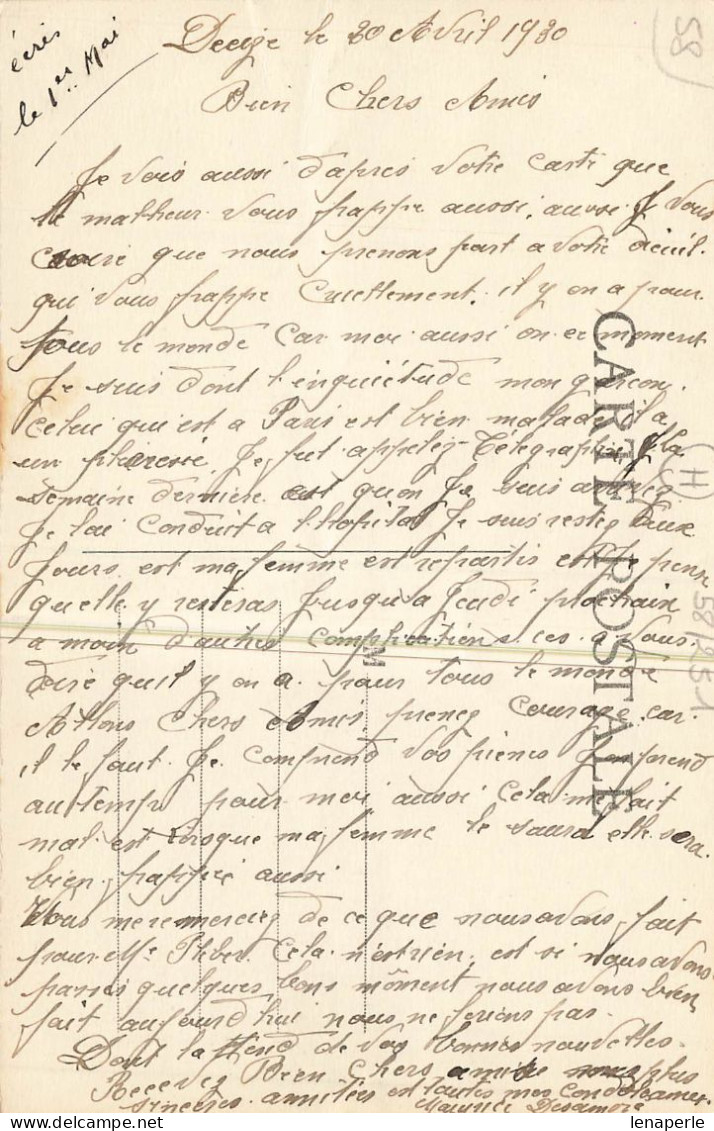 écris
le 1er Mai
58
Decize le 30 Avril 1930
Bien Chers Amis
Je vois aussi d'après votre carte que
le malheur vous frappe aussi, aussi J vous
que nous prenons part a votre deeuil.
qui vous frappe Cruellement. il y on a pour
tous le monde Car moi aussi on ce moment
Je suis dont l'inquiétude mon garçon.
celui qui est a Paris est bien malade il a
un Je fut appeleg Télégraphie la
Semaine dernière est quon Je suis
Je lai Conduit a l'hopital Je suis resteg deux
Jours est ma femme est repartis est Je pense
quelle y restesas Jusqu a Jeudi prochain
a moin d'autres Complications ces a vous
dire quil y on a pour tous le monde
Allons Chers Amis preneg Courage car.
il le faut Je Comprend vos pienes Je prend
au temps pour moi aussi Cela me fait
mal est lorsque ma femme le saura elle sera
bien frappée aussi
Vous me remercieg de ce que nous avons fait
pour Me Cela n'est rien, est si nous avons
passes quelques bons moment nous avons bien
fait aujourd hui nous ne ferions pas.
Dont la ttend de vos bonnes nouvelles.
Recevez Bien Chers amis nos plus
sinceres amities est toutes mes Condoleances
Maurice
CARTE POSTALE
M
H
58 1951
lenaperle
delcampe.net